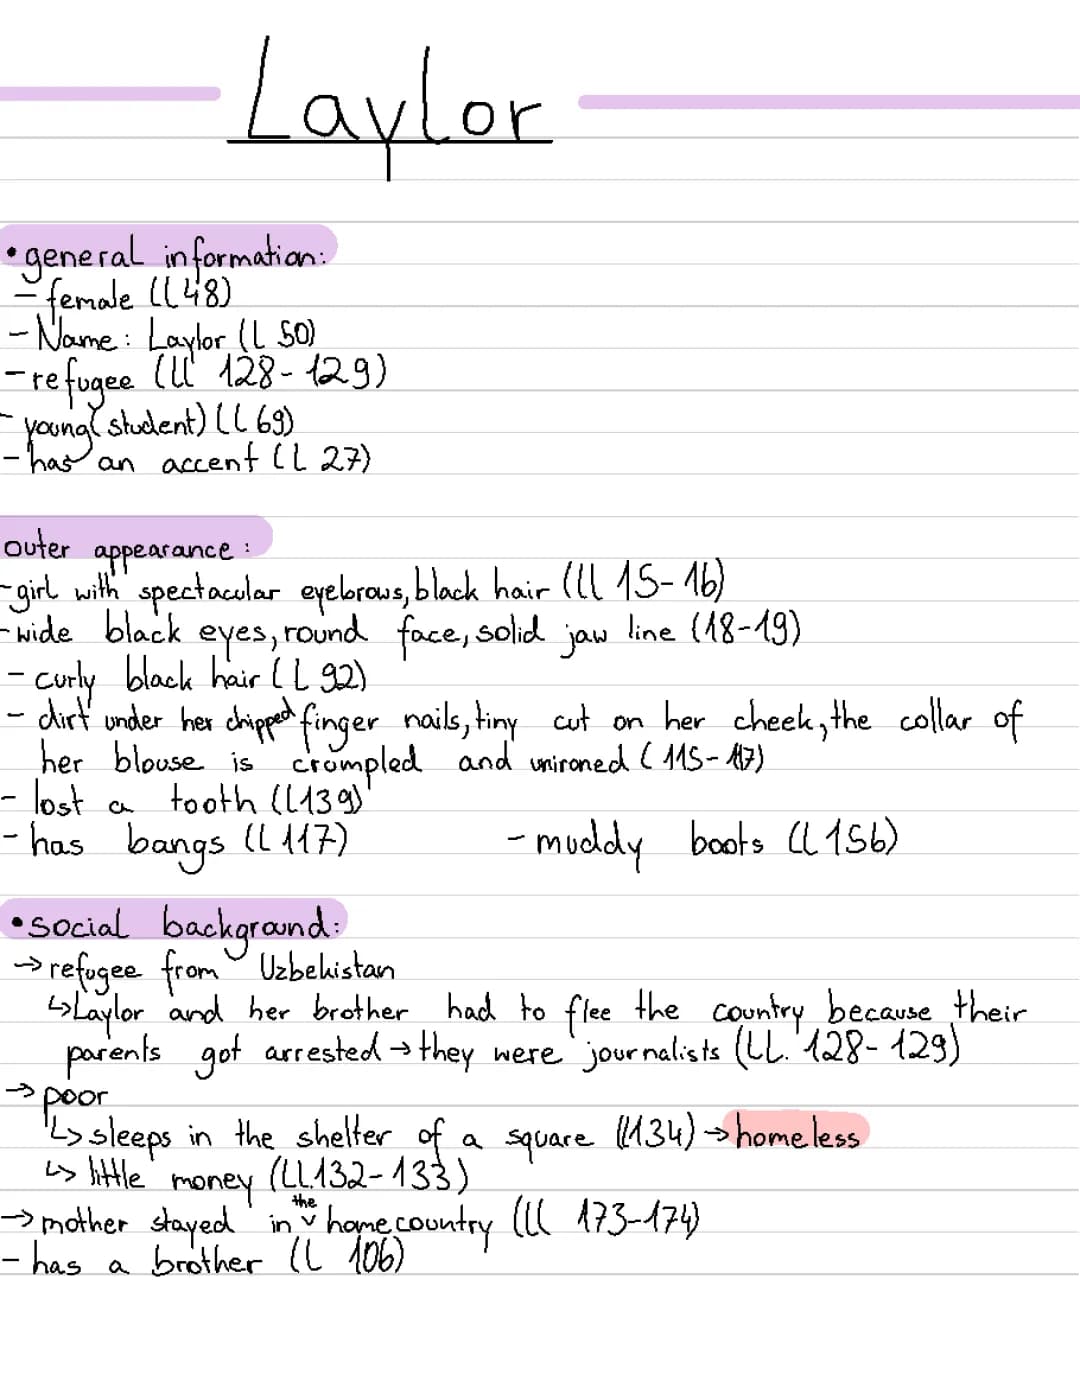 Laylor
• general information:
- female (l 48)
- Name: Laylor (l 50)
- refugee (ll 128-129)
- young (student) (l 69)
- has an accent (l 27)
outer appearance:
- girl with spectacular eyebrows, black hair (ll 15-16)
- wide black eyes, round face, solid jaw line (18-19)
- curly black hair (l 92)
- dirt under her chipped finger nails, tiny cut on her cheek, the collar of
her blouse is crumpled and unironed (115-117)
- lost a tooth (l 139)
- has bangs (l 117) - muddy boots (l 156)
• social background:
→ refugee from Uzbekistan
↳ Laylor and her brother had to flee the country because their
parents got arrested → they were journalists (LL. 128-129)
→ poor
↳ sleeps in the shelter of a square (l 134) → homeless
↳ little money (LL. 132-133)
→ mother stayed in the home country (ll 173-174)
- has a brother (l 106)